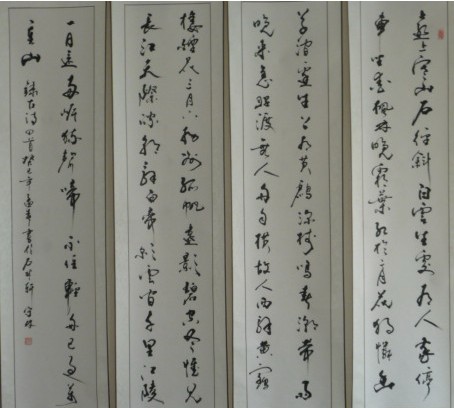 遠上寒山石徑斜白雲生處有人家停
車坐愛楓林晚霜葉紅於二月花獨憐幽
草澗邊生上有黃鸝深樹鳴春潮帶雨
晚來急野渡無人舟自橫故人西辭黃鶴
樓煙花三月下揚州孤帆遠影碧空盡惟見
長江天際流朝辭白帝彩雲間千里江陵
一日還兩岸猿聲啼不住輕舟已過萬
重山 錄古詩四首癸巳年書於